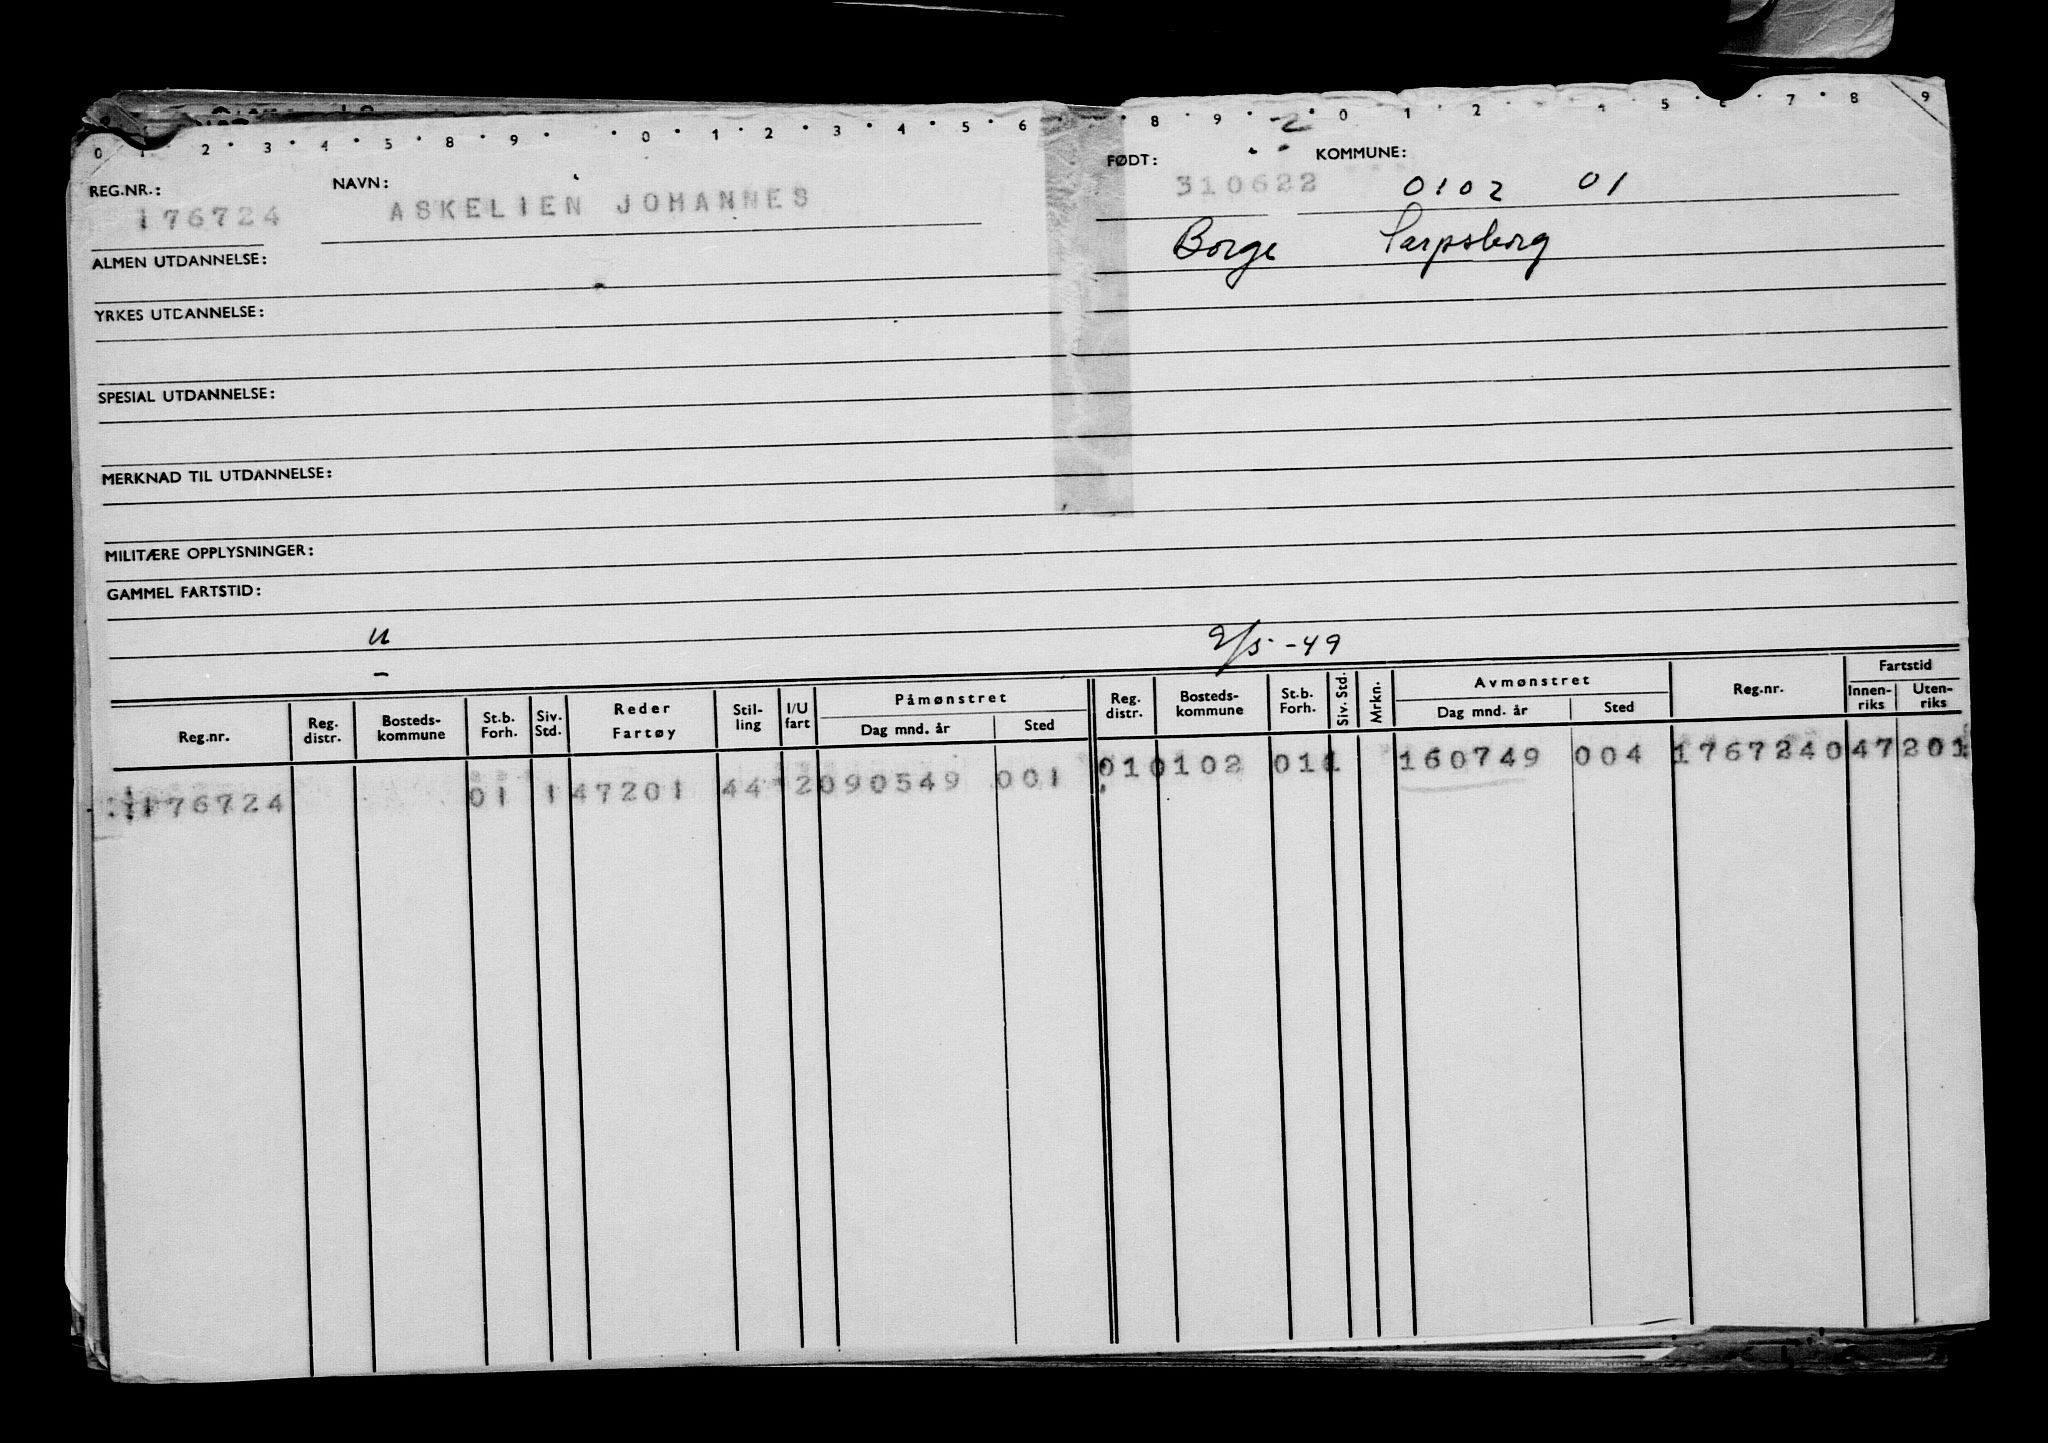 0 1 2 3 4 5 8 9 0 1 2 3 4 5 6 8 9 2 0 1 2 4 5 6 7 8 9
REG.NR.: NAVN: FØDT: KOMMUNE:
176724 ASKELIEN JOHANNES 310622 0102 01
ALMEN UTDANNELSE: Borge Sarpsborg
YRKES UTDANNELSE:
SPESIAL UTDANNELSE:
MERKNAD TIL UTDANNELSE:
MILITÆRE OPPLYSNINGER:
GAMMEL FARTSTID:
u 9/5-49
-
Reg.nr. Reg. distr. Bosteds- kommune St.b. Forh. Siv. Std. Reder Fartøy Stil- ling I/U fart Påmønstret Dag mnd. år Sted Reg. distr. Bosteds- kommune St.b. Forh. Siv. Std. Mrkn. Avmønstret Dag mnd. år Sted Reg.nr. Fartstid Innen- riks Uten- riks
176724 01 1 47201 44 2 090549 001 01 0102 01 1 160749 004 1767240 47 201